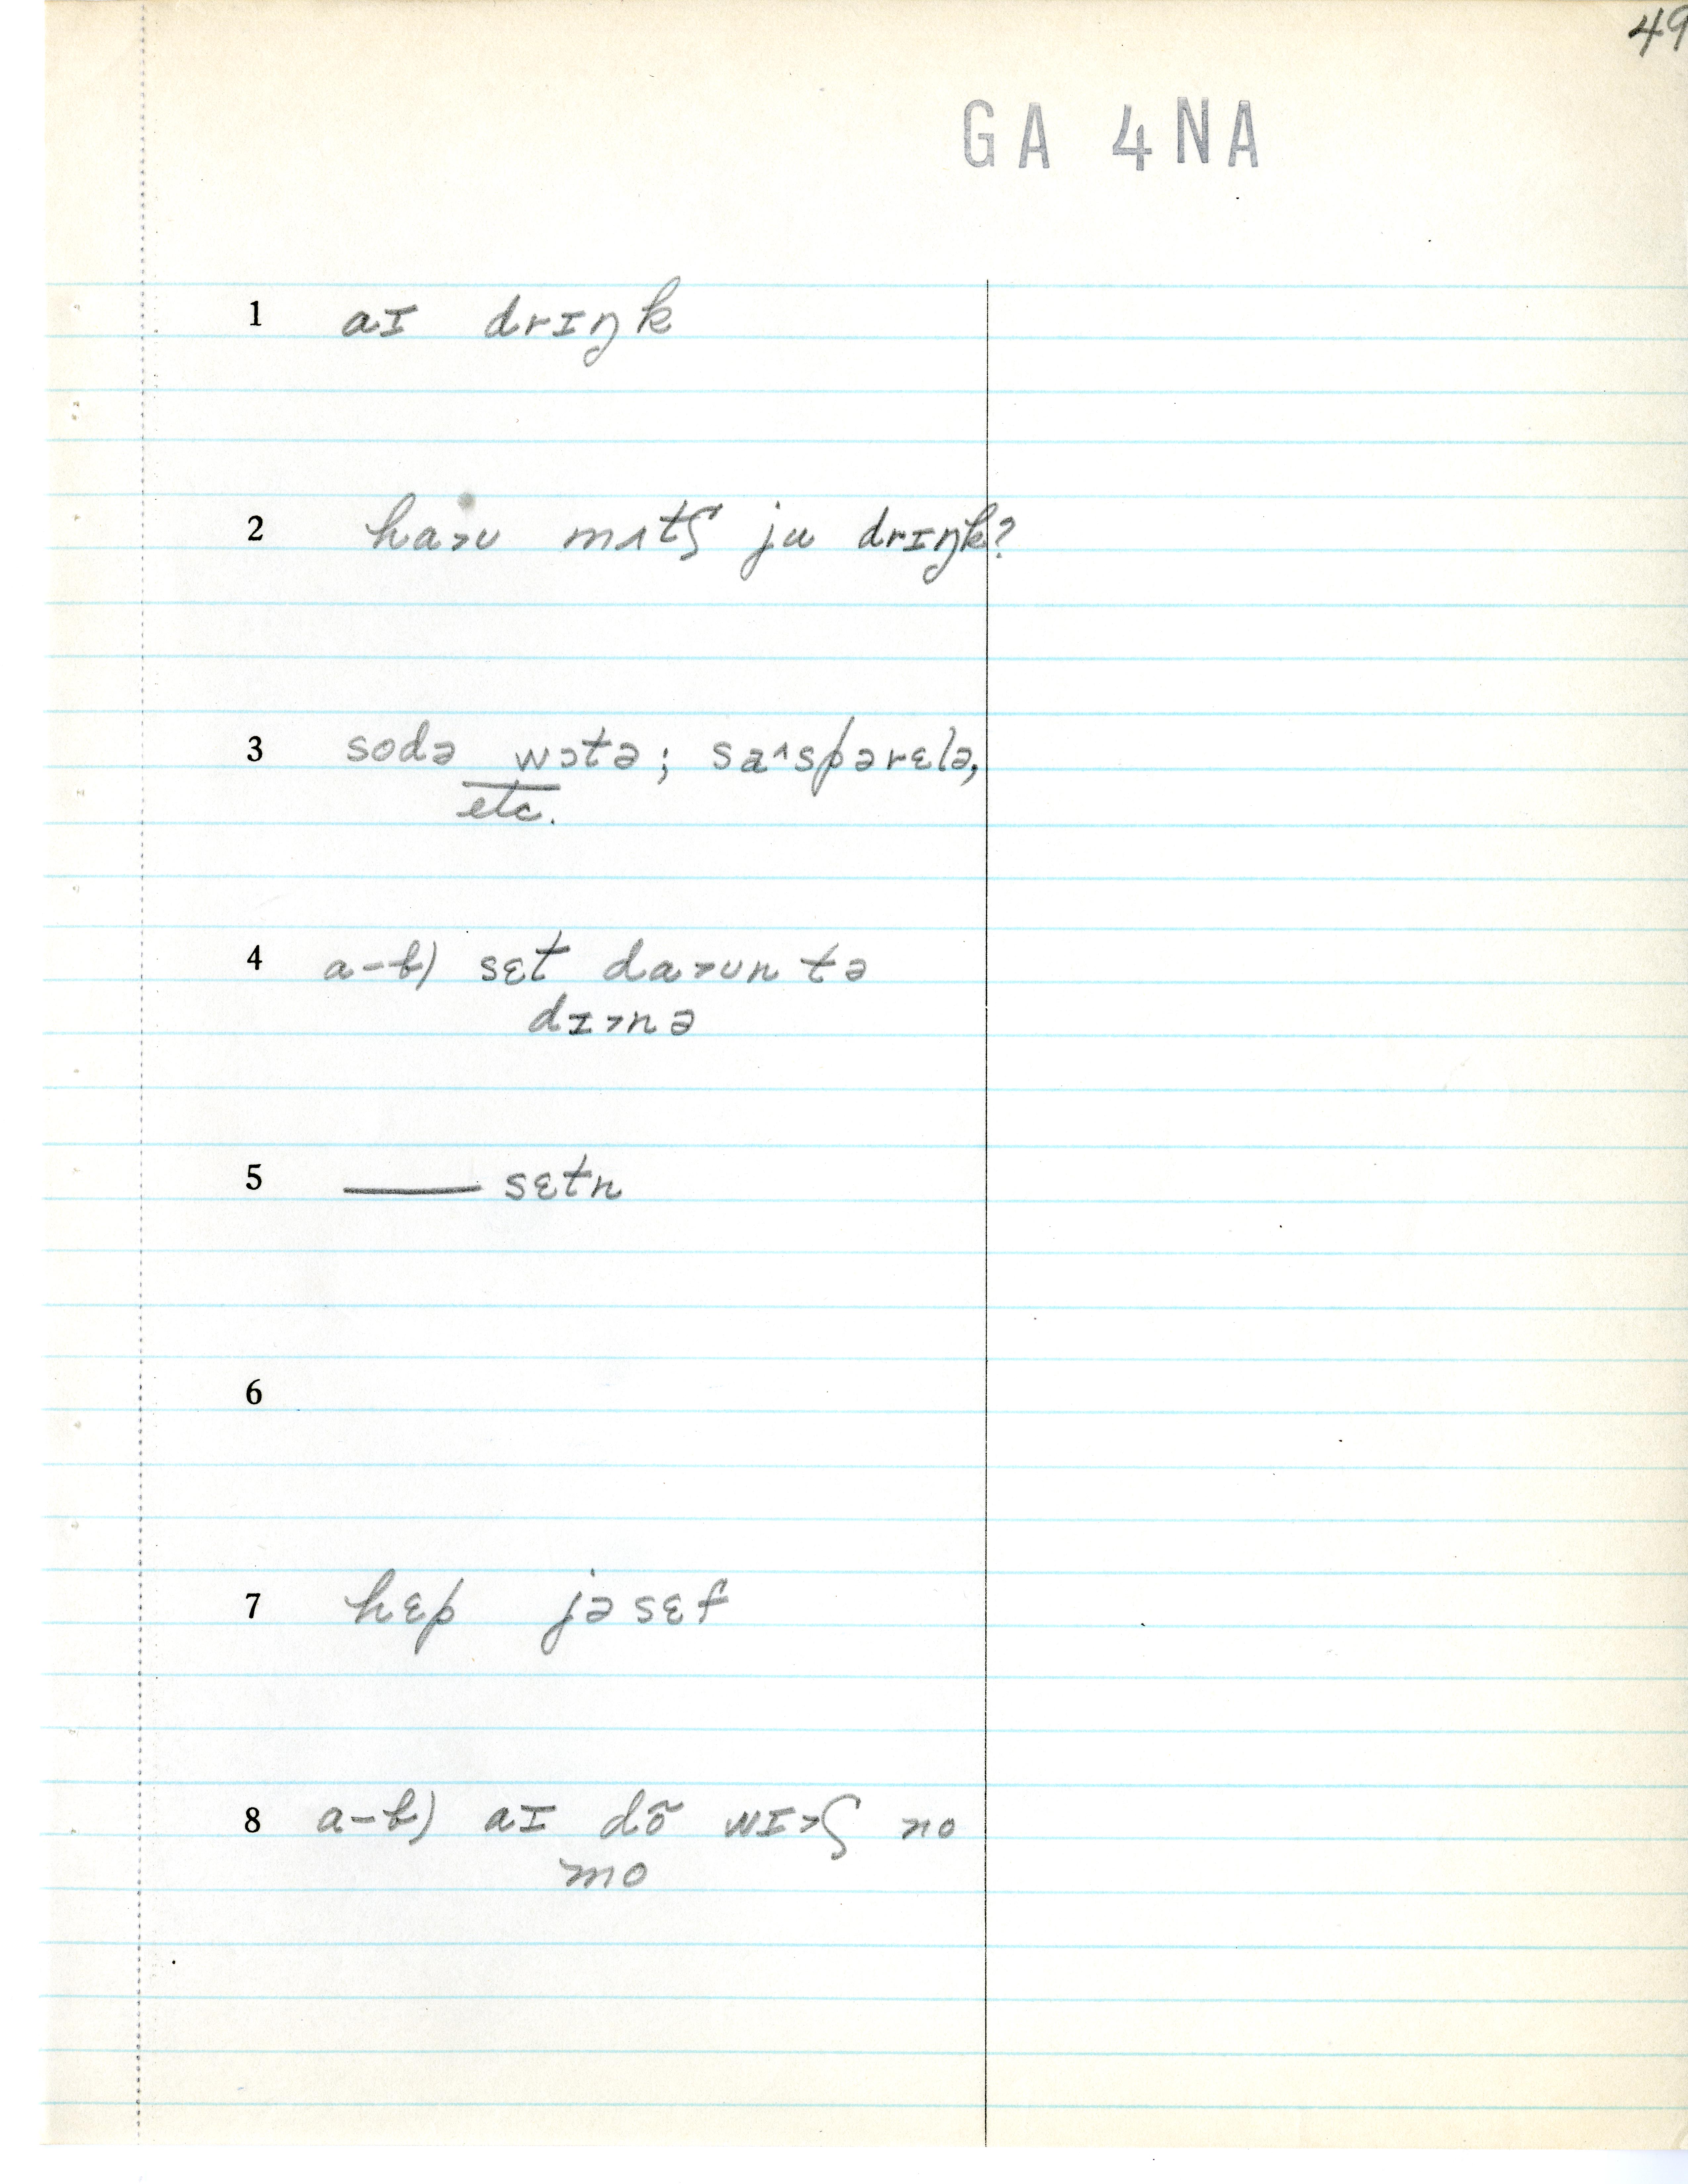 49
GA 4NA
1 aɪ drɪŋk
2 ha˃ʊ mʌtʃ ju drɪŋk?
3 sodə wɔtə; sa˄spərɛlə,
etc.
4 a-b) sɛt da˃ʊn tə
dɪ˃nə
5 —— sɛtn
6
7 hɛp jəsɛf
8 a-b) aɪ dõ wɪ˃ʃ no
mo